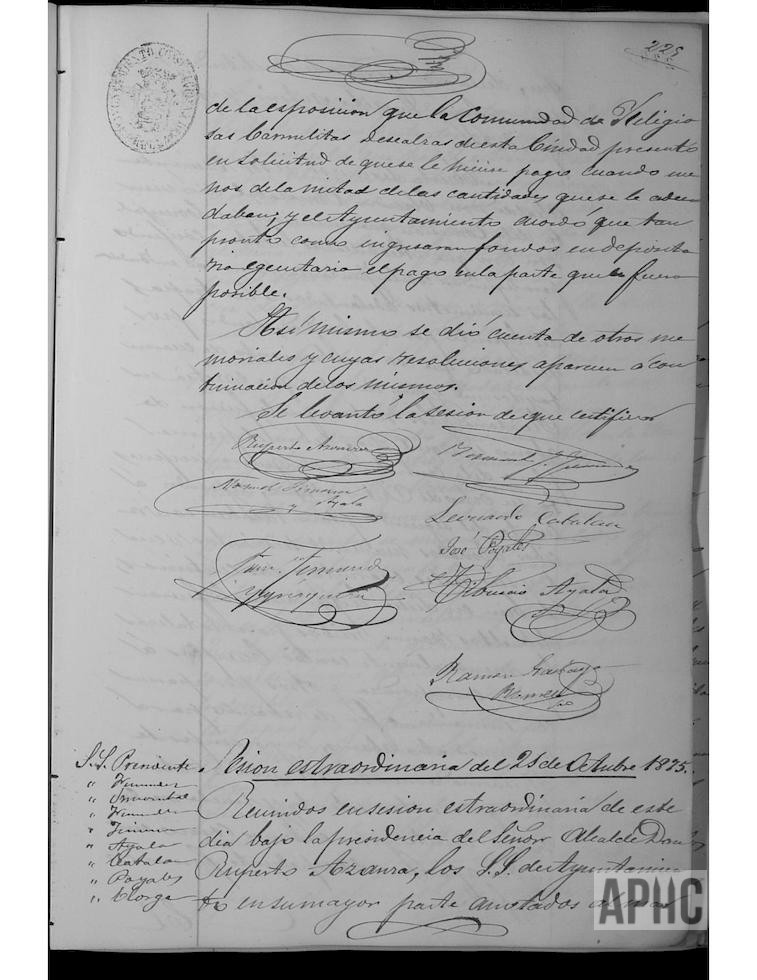 225
de la esposicion que la Comunidad de Religio
sas Carmelitas Descalzas de esta Ciudad presentó
en solicitud de que se le hiciese pago cuando me
nos de la mitad de las cantidades que se le adeu
daban; y el Ayuntamiento acordó que tan
pronto como ingresaran fondos en deposita
ria egecutaria el pago en la parte que le fuera
posible.
Asi mismo se dió cuenta de otros me
moriales y cuyas resoluciones aparecen á con
tinuacion de los mismos.
Se levantó la sesion de que certifico
Ruperto Azaura
Manuel Jimeno
y Ayala
Leonardo Catalan
José Poyales
Tiburcio Ayala
Ramon
S.S. Presidente
Sesion estraordinaria del 25 de Octubre 1875.
" Jimeno
" Ayala
" Catalan
" Poyales
" Clorga
Reunidos en sesion estraordinaria de este
dia bajo la presidencia del Señor Alcalde Don
Ruperto Azaura, los S.S. de Ayuntamien
to en su mayor parte anotados al mar
APHC